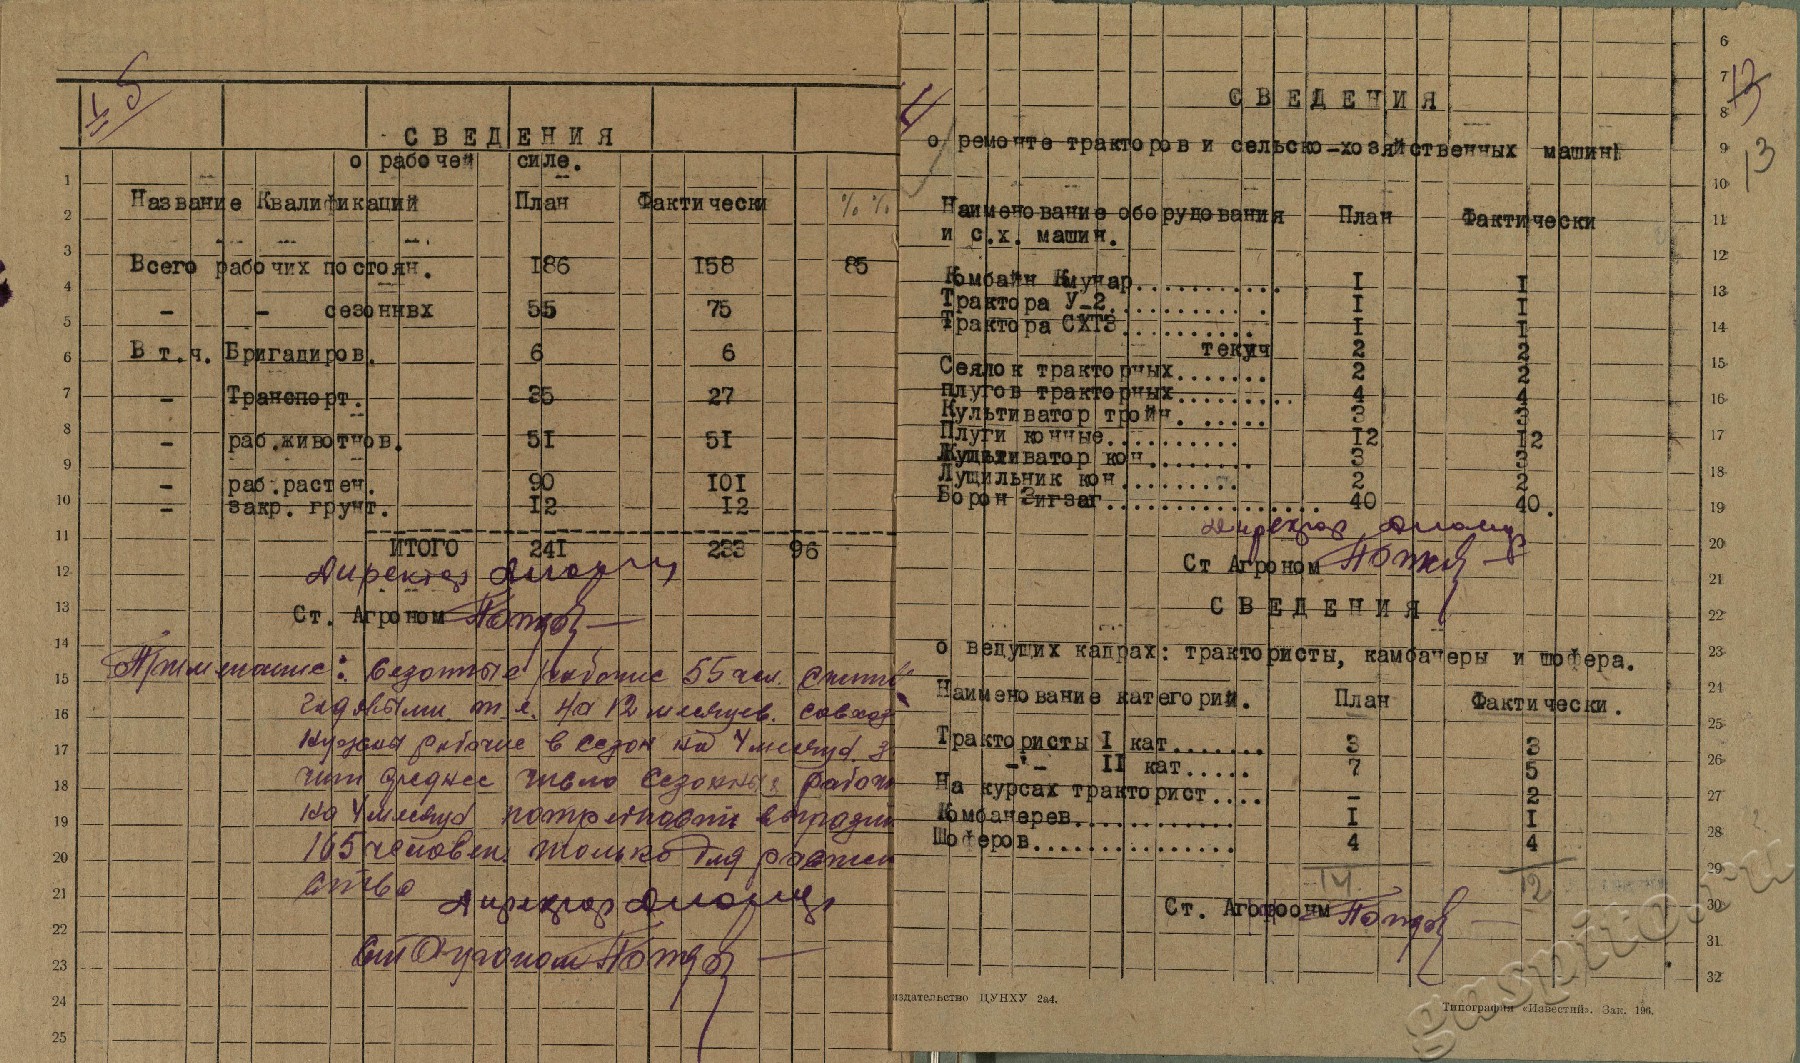 5
СВЕДЕНИЯ
о рабочей силе.
Название Квалификаций План Фактически %%
Всего рабочих постоян. 186 158 85
- - сезоннвх 55 75
В т.ч. Бригадиров. 6 6
- Транспорт. 35 27
- раб.животнов. 51 51
- раб.растен. 90 101
- закр. грунт. 12 12
ИТОГО 241 233 96
Директор
Ст. Агроном
Примечание: Сезонные рабочие 55 чел.
годовыми т.е. на 12 месяцев. совхоз
нужны рабочие в сезон на 4 месяца
среднее число сезонных рабоч
на 4 месяца
165 человек только для растен
ство
Директор
Ст Агроном
1
2
3
4
5
6
7
8
9
10
11
12
13
14
15
16
17
18
19
20
21
22
23
24
25
13
13
СВЕДЕНИЯ
о ремонте тракторов и сельско-хозяйственных машин
Наименование оборудования План Фактически
и с.х. машин.
Комбайн Кмунар........... I I
Трактора У-2............ I I
Трактора СХТЗ.......... I I
текуч 2 2
Сеялок тракторных....... 2 2
плугов тракторных......... 4 4
Культиватор тройн. ..... 3 3
Плуги конные.......... 12 12
Культиватор кон........ 3 3
Лущильник кон......... 2 2
Борон Зигзаг................ 40 40.
Директор
Ст Агроном
СВЕДЕНИЯ
о ведущих кадрах: трактористы, камбанеры и шофера.
Наименование категорий. План Фактически.
Трактористы I кат....... 3 3
-"- II кат..... 7 5
На курсах тракторист.... - 2
Комбанерев............. I I
Шоферов................ 4 4
14 12
Ст. Агофоонм
6
7
8
9
10
11
12
13
14
15
16
17
18
19
20
21
22
23
24
25
26
27
28
29
30
31
32
издательство ЦУНХУ 2а4.
Типография «Известий». Зак. 196.
gaspito.ru